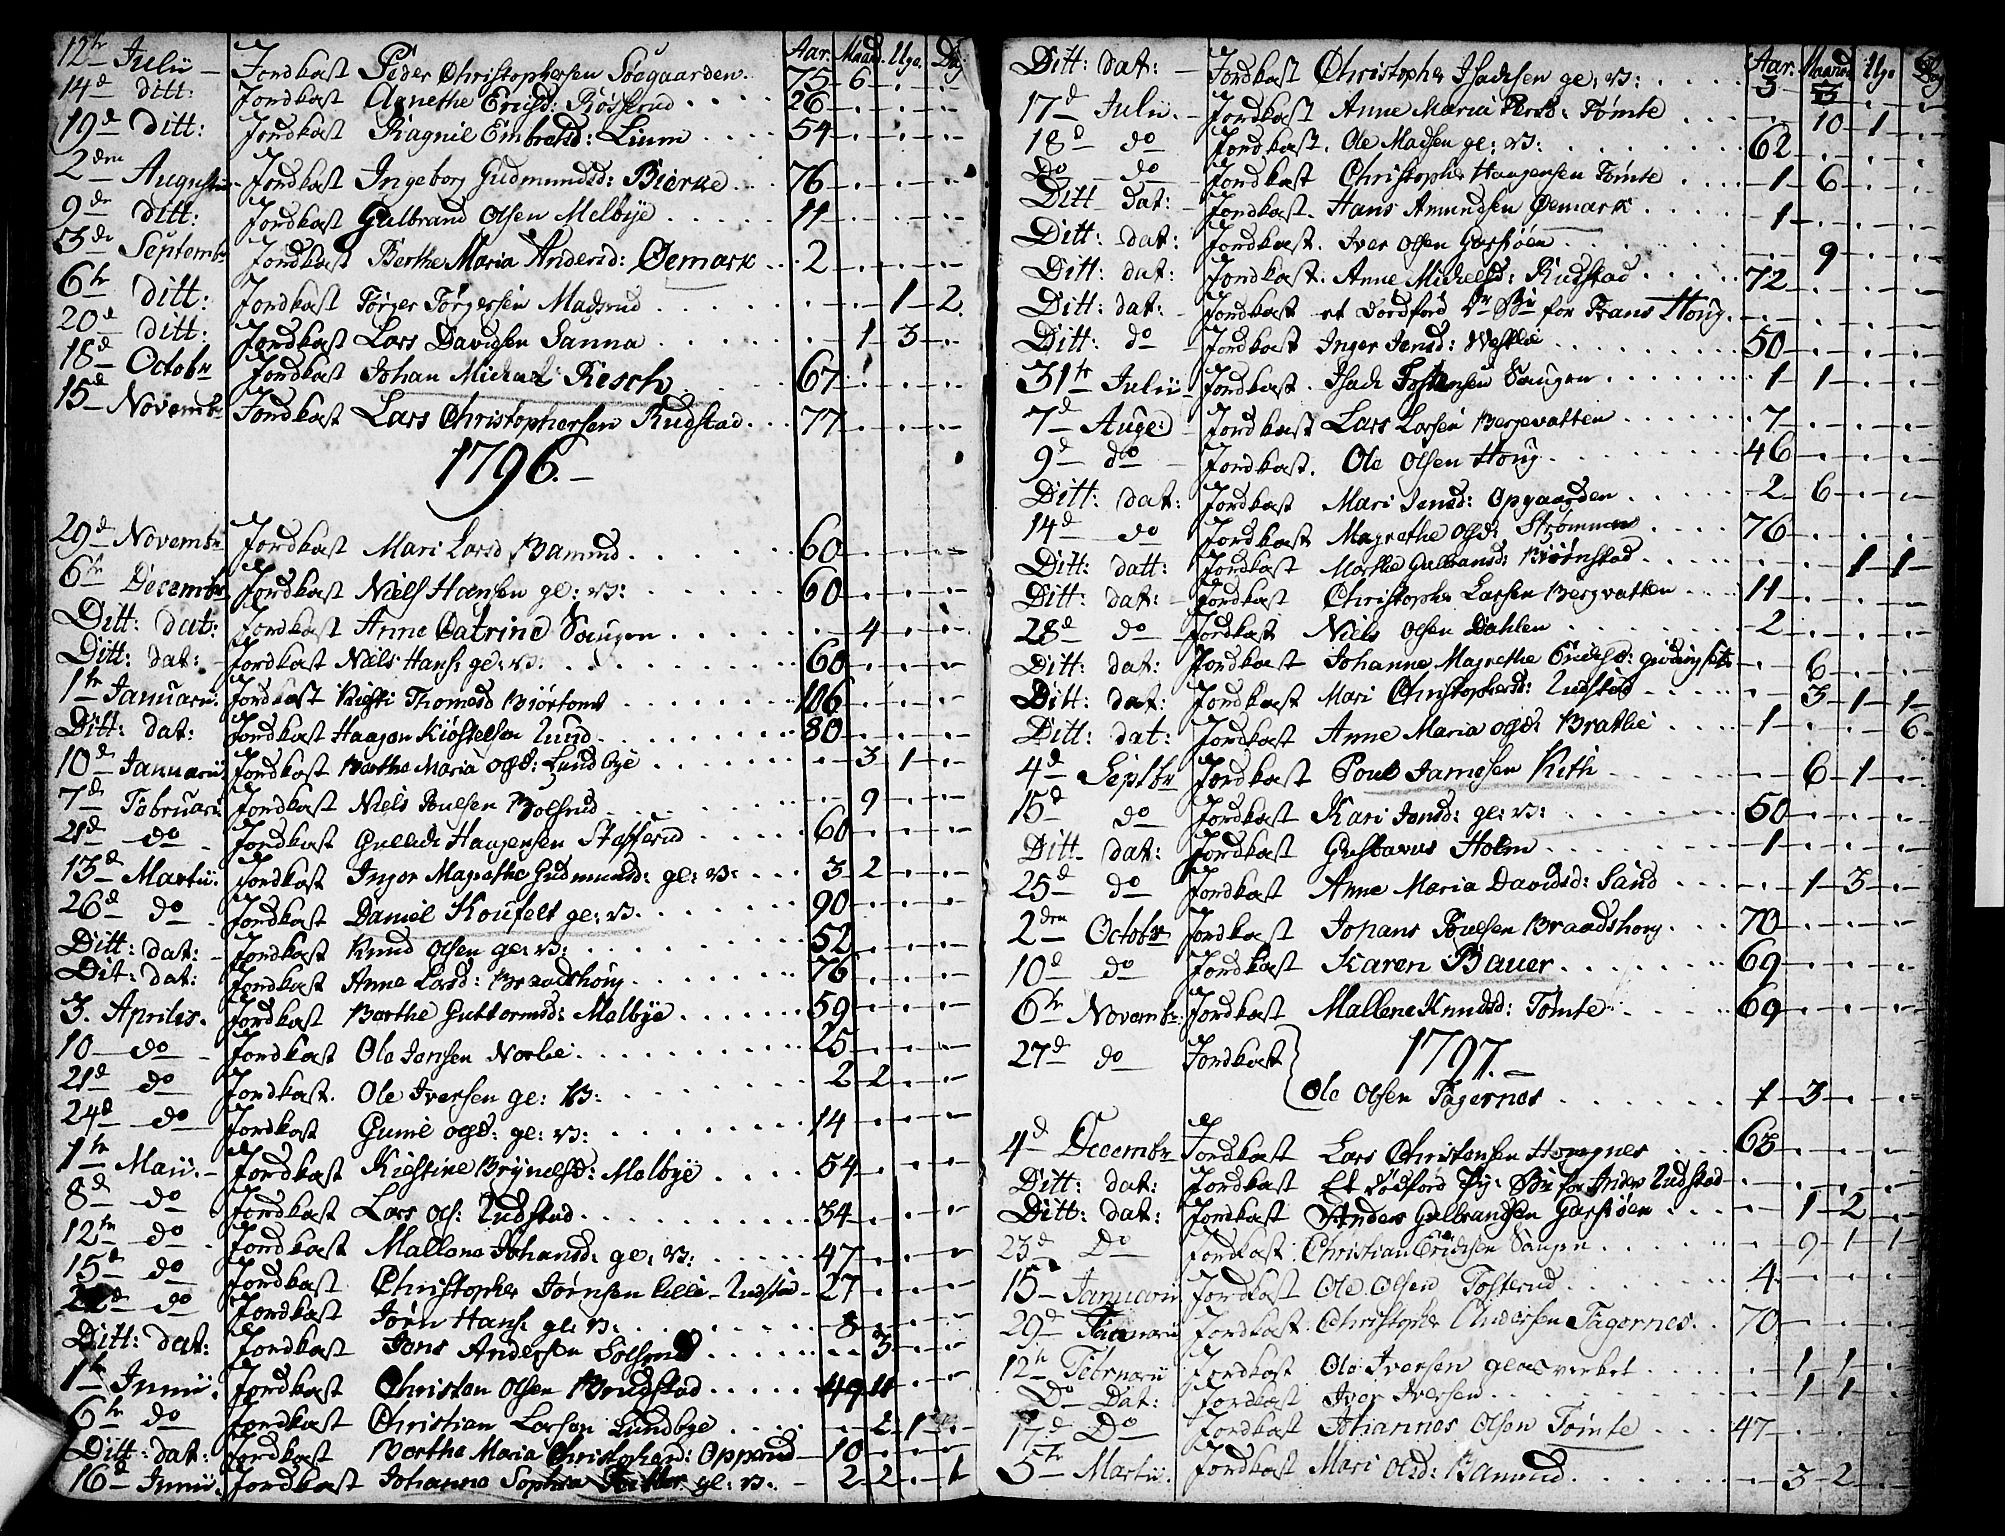 Aar. Maad. Uge. Dag
12te Julii Jordkast Peder Christophersen Søegaarden 75 6
14d ditt: Jordkast Agnethe Erichsd: Røskrud 26
19d Ditt: Jordkast Ragnil Embretsd: Lium 54
2den Augustii Jordkast Ingeborg Gudmundsd: Bierke 76
9de ditt: Jordkast Gulbrand Olsen Melbye 11
3de Septembr Jordkast Berthe Maria Andersd: Øemark 2
6te ditt: Jordkast Törger Törgersen Madsrud 1 2
20d ditt: Jordkast Lars Davidsen Sanna 1 3
18d Octobr Jordkast Johan Michael Resch 67
15d Novembr Jordkast Lars Christophersen Rudstad 77
1796.
29d Novembr Jordkast Mari Larsd Bamrud 60
6te Decembr Jordkast Niels Hansen ge: v: 60
Ditt: dat: Jordkast Anne Catrine Saugen 4
Ditt: dat: Jordkast Niels Hans: ge: v: 60
1te Januarii Jordkast Kisti Thomesd Biörtomt 106
Ditt: dat: Jordkast Haagen Kiöstelsen Lund 80
10d Januarii Jordkast Berthe Maria Olsd: Lundbye 3 1
7d Februarii Jordkast Niels Poulsen Bolsrud 9
21d do Jordkast Gullich Haagensen Stafserud 60
13d Martii Jordkast Inger Magrethe Gudmundsd: ge: v: 3 2
26d do Jordkast Daniel Koufelt ge: v. 90
Ditt: dat: Jordkast Knud Olsen ge: v: 52
Dit: dat: Jordkast Anne Larsd: Braadshoug 76
3. Aprilis. Jordkast Berthe Guttormsd: Malbye 59
10 do Jordkast Ole Jonsen Norbe 25
21d do Jordkast. Ole Iversen ge: v: 2 2
24d do Jordkast Gunil Olsd: ge: v: 14
1te Maii Jordkast Kiestine Brynelsd: Malbye 54
8d do Jordkast Lars Ols: Rudstad 34
12te do Jordkast Mallene Johansd: ge: v: 47
15d do Jordkast Christopher Jörnsen Lille-Rudstad 27
22d do Jordkast Jörn Hans: ge: v: 8
Ditt: dat: Jordkast Jens Andersen Solsrud 3
1te Junii. Jordkast Christen Olsen Brudstad 49 11
6te do Jordkast Christian Larsen Lundbye 2 1
Ditt: dat: Jordkast Berthe Maria Christophersd: Opperud 10
16d Junii Jordkast Johanne Sophia ge: v. 2 2 1
Aar. Maaned Uge Dag
Ditt: dat: Jordkast Christopher Isachsen ge: v: 3
17d Julii. Jordkast Anne Maria Persd: Tömte 10 1
18d do Jordkast. Ole Madsen ge: v: 62
Do do Jordkast Christopher Haagensen Tömte 1 6
Ditt dat: Jordkast. Hans Amundsen Øemark 1
Ditt: dat: Jordkast. Iver Olsen Garsiöen 9
Ditt: dat: Jordkast. Anne Michelsd: Rudstad 72
Ditt: dat: Jordkast et Dödföd for Frans Houg
Ditt: do Jordkast Inger Jensd: Westlie 50
31te Julii Jordkast. Isach Tostensen Saugen 1 1
7d Auge: Jordkast Lars Larsen Bergevatten 7
9d do Jordkast. Ole Olsen Houg 46
Ditt: dat: Jordkast Mari Jensd: Opgaarden 2 6
14d do Jordkast Magrethe Olsd: Strömmen 76
Ditt: datt: Jordkast Marthe Gulbransd: Biörnstad 1 1
Ditt: dat: Jordkast Christopher Larsen Bergvatten 11
28d do Jordkast Niels Olsen Dahlen 2
Ditt: dat: Jordkast Johanne Magrethe Erichsd: 6
Ditt: dat: Jordkast Mari Christophersd: Rudstad 3 1 1
Ditt: dat: Jordkast Anne Maria Olsd: Bratlie 1 6
4d Septbr Jordkast Poul Jamesen Kith 6 1
15d do Jordkast Kari Jensd: ge: v: 50
Ditt dat: Jordkast Gustavus Holm 1
25d do Jordkast Anne Maria Davidsd: Sand 1 3
2den Octobr Jordkast Johans Poulsen Braadshoug 70
10d do Jordkast Karen Bauer 69
6te Novembr. Jordkast Mallene Knudsd: Tömte 69
27d do Jordkast 1797.
Ole Olsen Fagernes 1 3
4d Decembr Jordkast Lars Christensen Houngnes 63
Ditt: dat: Jordkast Et dödföd for Anders Rudstad
Ditt: dat: Jordkast Anders Gulbrandsen Garsiöen 1 2
23d Do Jordkast Christian Erichsen Saugen 9 1 1
15 Januarii Jordkast Ole Olsen Tosterud 4
29d Januarii Jordkast. Christopher Andersen Fagernes. 70
12te Februarii Jordkast Ole Iversen glasverket 1 1
Do Dat: Jordkast Iver Iversen 1 1
17d Do Jordkast Johannes Olsen Tömte 47
5te Martii. Jordkast Mari Olsd: Bamrud 3 2